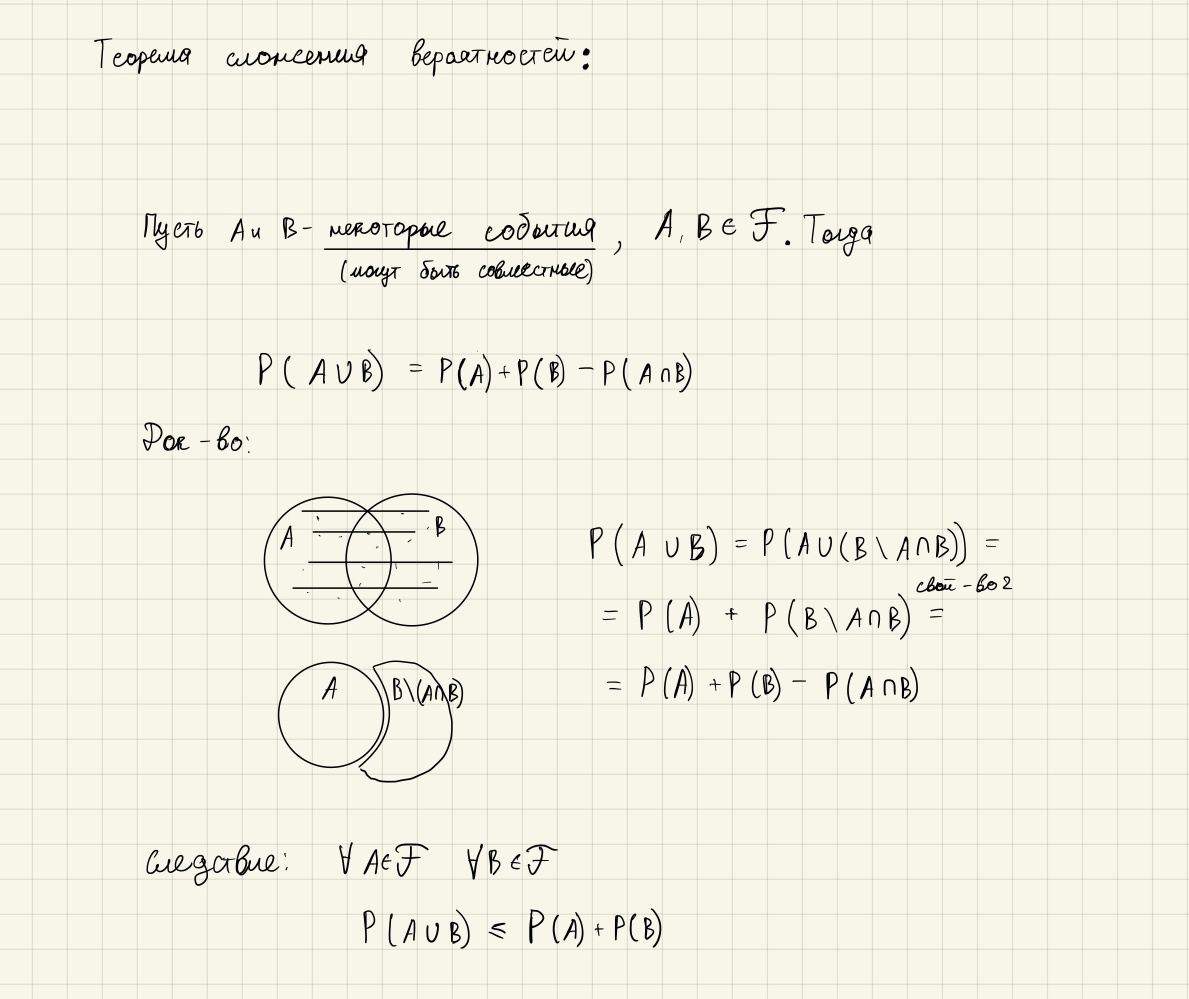 Теорема сложения вероятностей:
Пусть A и B - некоторые события, A, B ∈ ℱ. Тогда
(могут быть совместные)
P(A ∪ B) = P(A) + P(B) - P(A ∩ B)
Док-во:
A B
P(A ∪ B) = P(A ∪ (B \ A ∩ B)) =
свой-во 2
= P(A) + P(B \ A ∩ B) =
A B\(A∩B)
= P(A) + P(B) - P(A ∩ B)
следствие: ∀ A ∈ ℱ ∀ B ∈ ℱ
P(A ∪ B) ≤ P(A) + P(B)